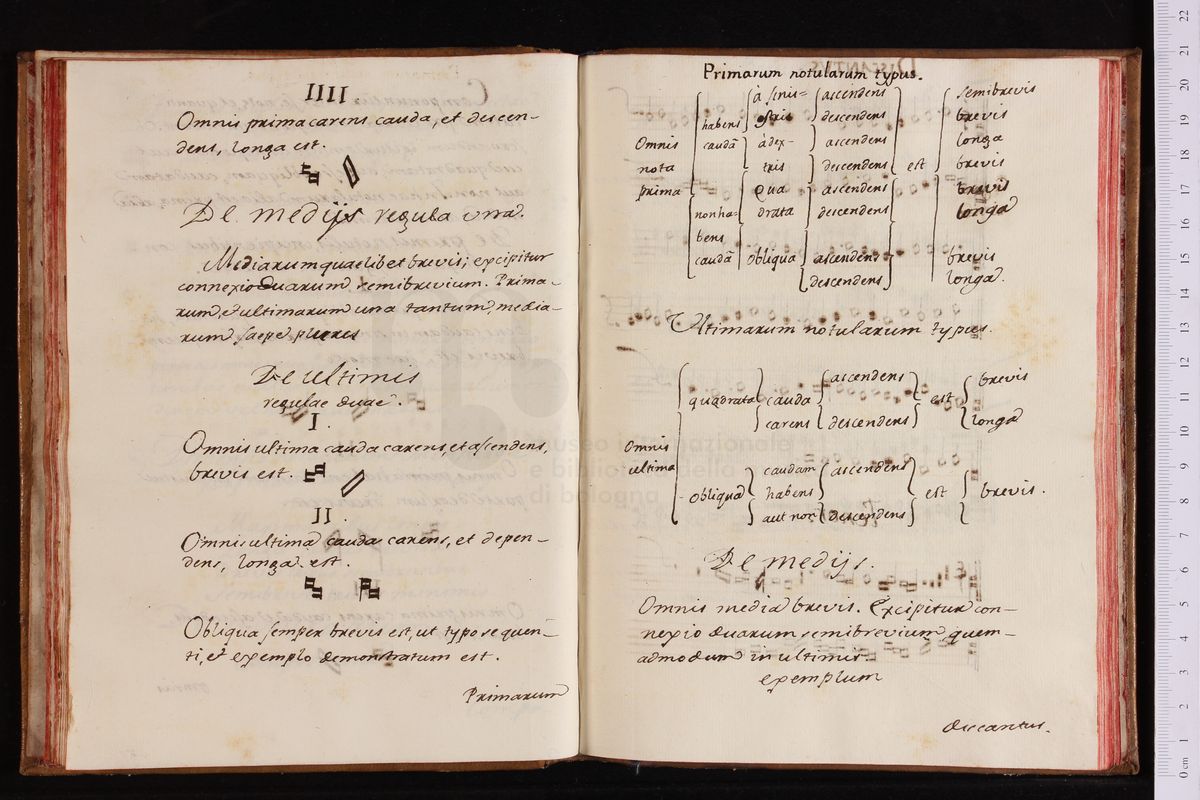 IIII
Omnis prima carens cauda, et descen-
dens, longa est.
De medijs regula una.
Mediarum quaelibet brevis; excipitur
connexio duarum semibrevium. Prima-
rum, et ultimarum una tantum, media-
rum saepe plures
De ultimis
regulae duae.
I.
Omnis ultima cauda carens, et ascendens,
brevis est.
II.
Omnis ultima cauda carens, et depen-
dens, longa est.
Obliqua semper brevis est, ut typo sequen-
ti, et exemplo demonstratum est.
Primarum
Primarum notularum typus.
Omnis
nota
prima
habens
caudā
à sinis=
stris
ascendens
descendens
adex-
tris
ascendens
descendens
est
semibrevis
brevis
longa
brevis
nonha=
bens
caudā
Qua
drata
ascendens
descendens
brevis
longa
obliqua
ascendens
descendens
brevis
longa.
Ultimarum notularum typus.
Omnis
ultima
quadrata
cauda
carens
ascendens
descendens
est
brevis
longa
obliqua
caudam
habens
aut non
ascendens
descendens
est
brevis.
De medijs.
Omnis media brevis. Excipitur con-
nexio duarum semibrevium quem-
admodum in ultimis
exemplum
discantus.
0 cm 1 2 3 4 5 6 7 8 9 10 11 12 13 14 15 16 17 18 19 20 21 22